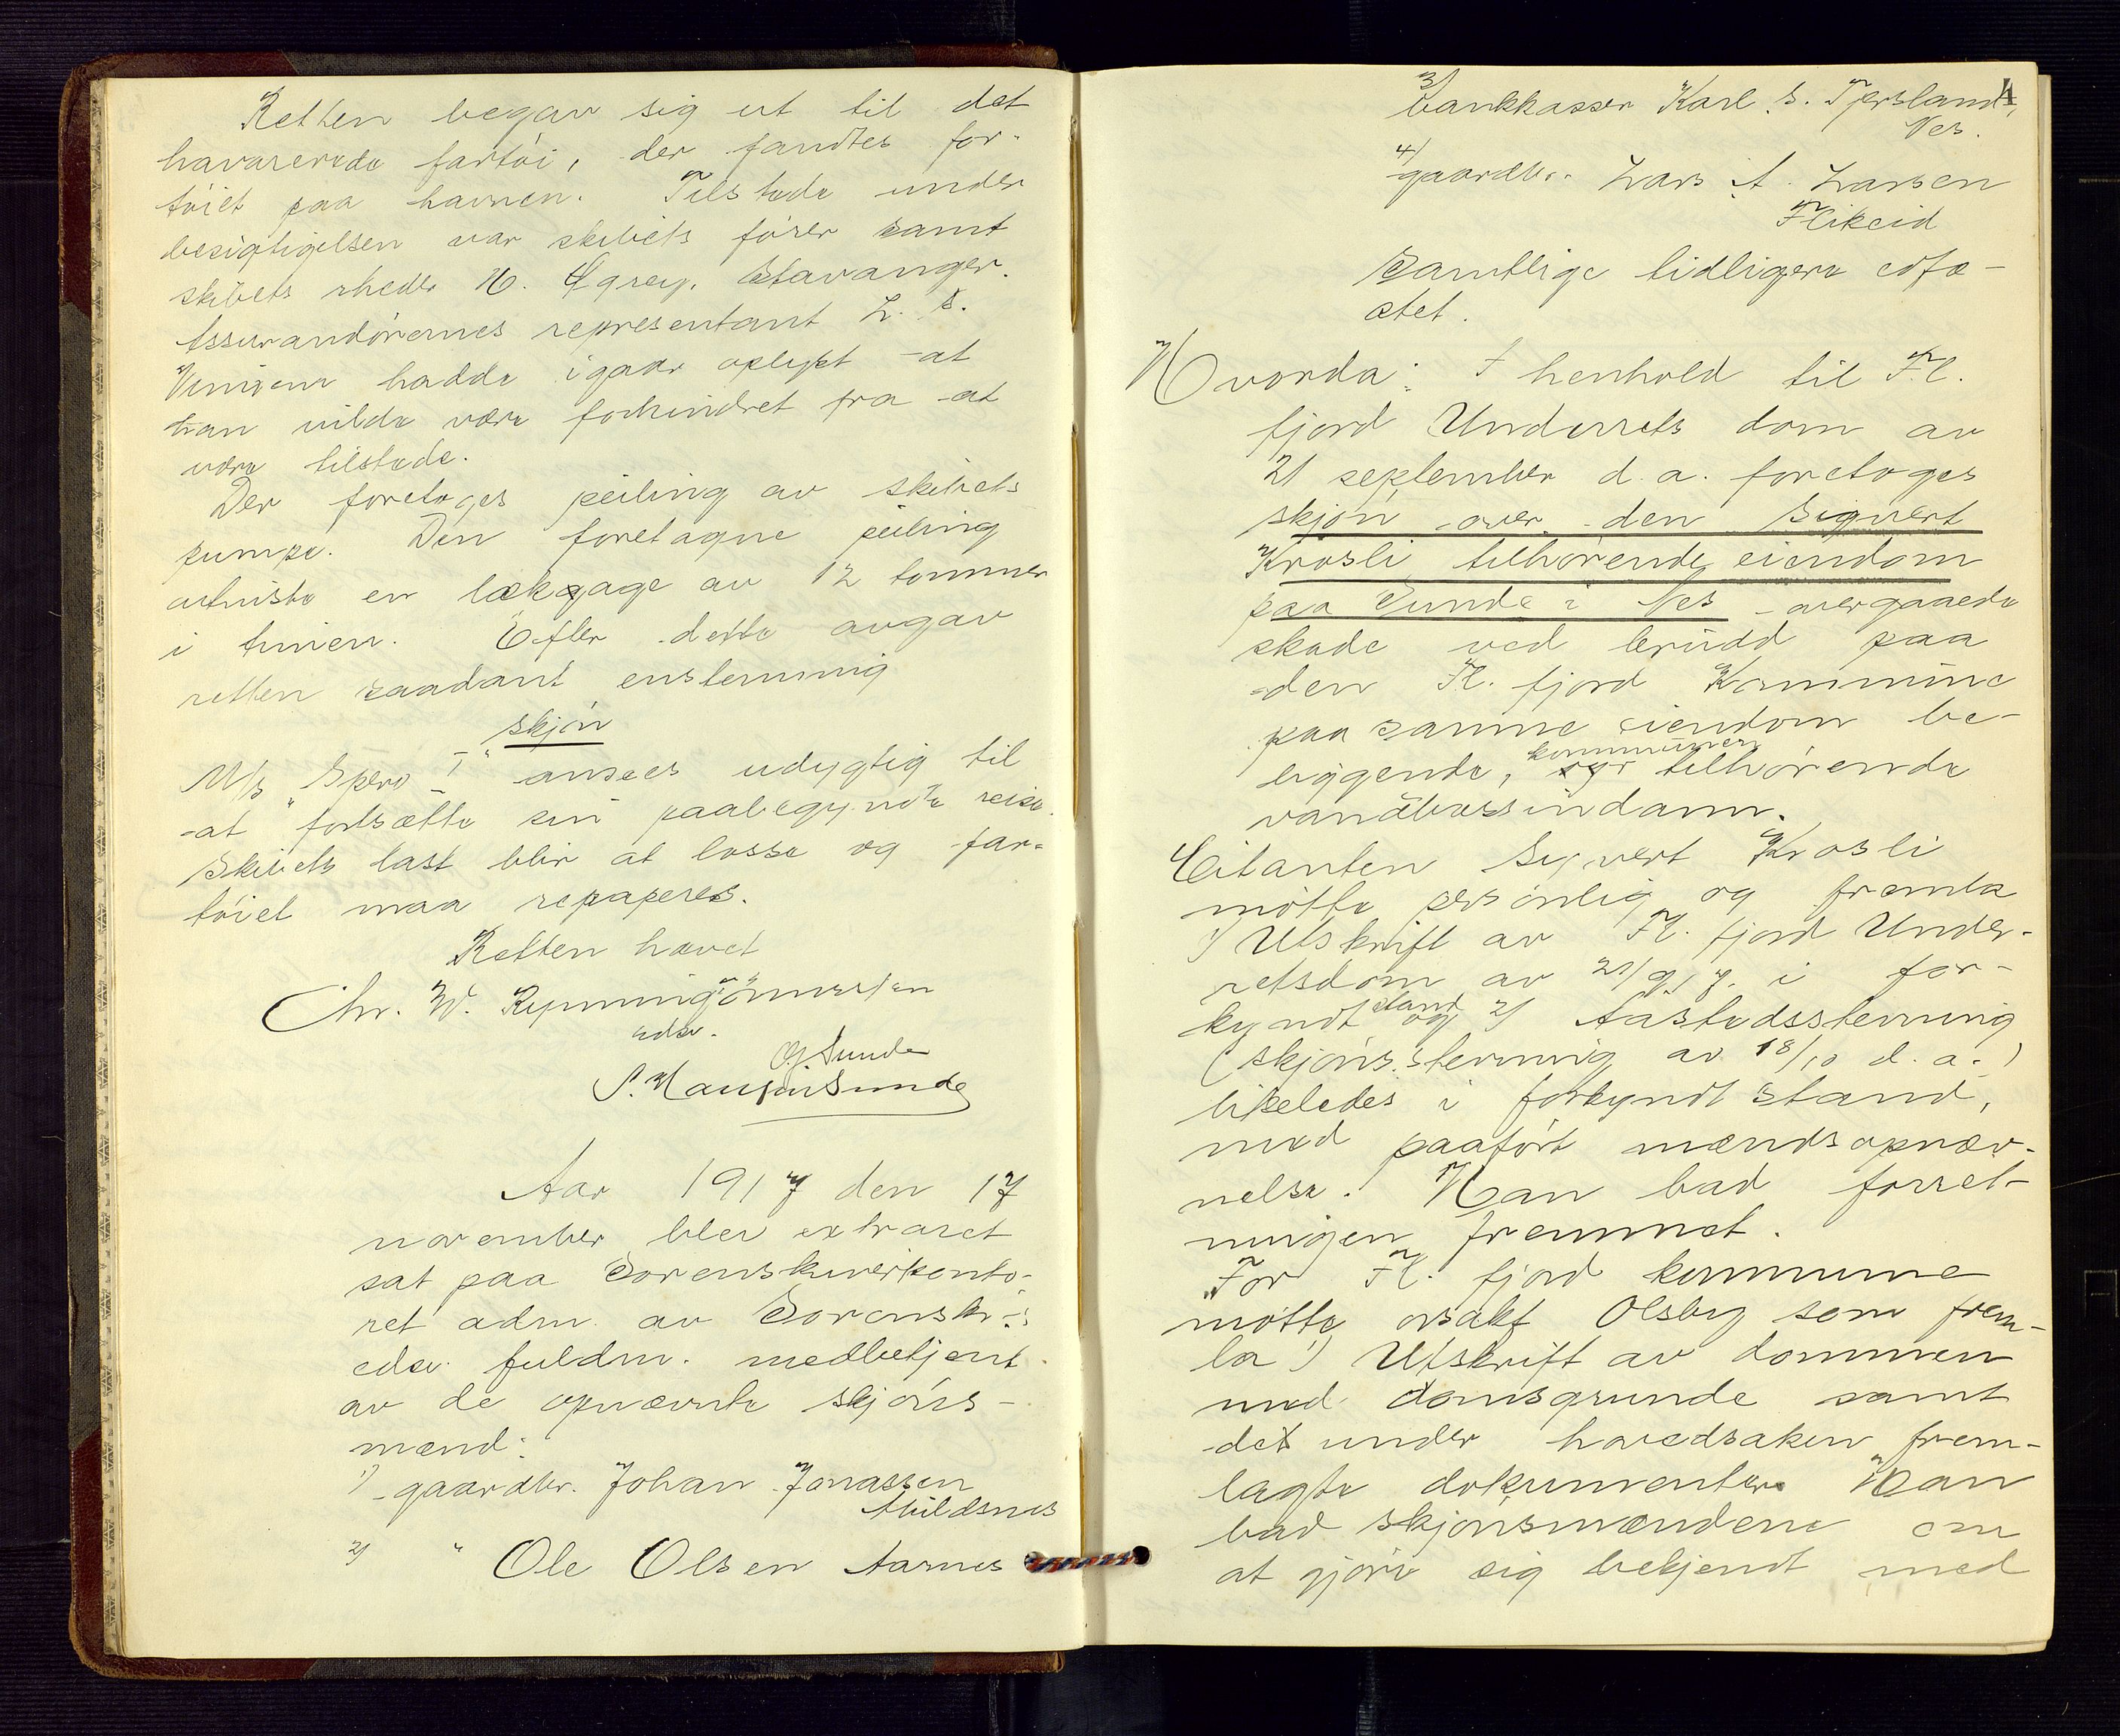 Retten begav sig ut til det
havarerede fartöi, der fandtes for-
töiet paa havnen. Tilstede under
besigtigelsen var skibets förer samt
skibets rheder H. Stavanger.
Assurandörernes representant L. S.
hadde igaar oplyst at
han vilde være forhindret fra at
være tilstede.
Der foretoges peiling av skibets
pumpe. Den foretagne peiling
utviste en lækage av 12 tommer
i timen. Efter dette avgav
retten saadant enstemmig
skjön
M/s "Spero I" ansees udygtig til
at fortsætte sin paabegyndte reise.
Skibets last blir at losse og far-
töiet maa repaperes.
Retten hævet
Chr. W.
edsv.
O.J. Sunde
Sunde
Aar 1917 den 17
november blev extraret
sat paa Sorenskriverkonto-
ret adm. av Sorenskr.s
edsv. fuldm. medbetjent
av de opnævnte skjöns-
mænd:
1) gaardbr. Johan Jonassen
Abildsnes
2) " Ole Olsen Aarnes
4
3) bankkasser Karl S. Tjersland,
Nes.
4) gaardbr. Lars A. Larsen
Flikeid
Samtlige tidligere edfæ-
stet.
Hvorda: I henhold til Fl.
fjord Underrets dom av
21 september d.a. foretoges
skjön over den Sigvert
Krosli tilhörende eiendom
paa Sunde i Nes overgaaede
skade ved brudd paa
den Fl. fjord Kommune
paa samme eiendom be-
kommunen
liggende, tilhörende
vandbassindam.
Citanten Sigvert Krosli
mötte personlig og fremla
1) Utskrift av Fl. fjord Under-
retsdom av 21/9 17. i for-
stand
kyndt og 2) Aastedsstevning
(skjönsstevning av 18/10 d.a.)
likeledes i forkyndt stand,
med paafört mændsopnæv-
nelse. Han bad forret-
ningen fremmet.
For Fl. fjord kommune
mötte orsakf Olsby som frem-
la 1) Utskrift av dommen
med domsgrunde samt
det under hovedsaken frem-
lagte dokumenter. Han
bad skjönsmændene om
at gjöre sig bekjendt med